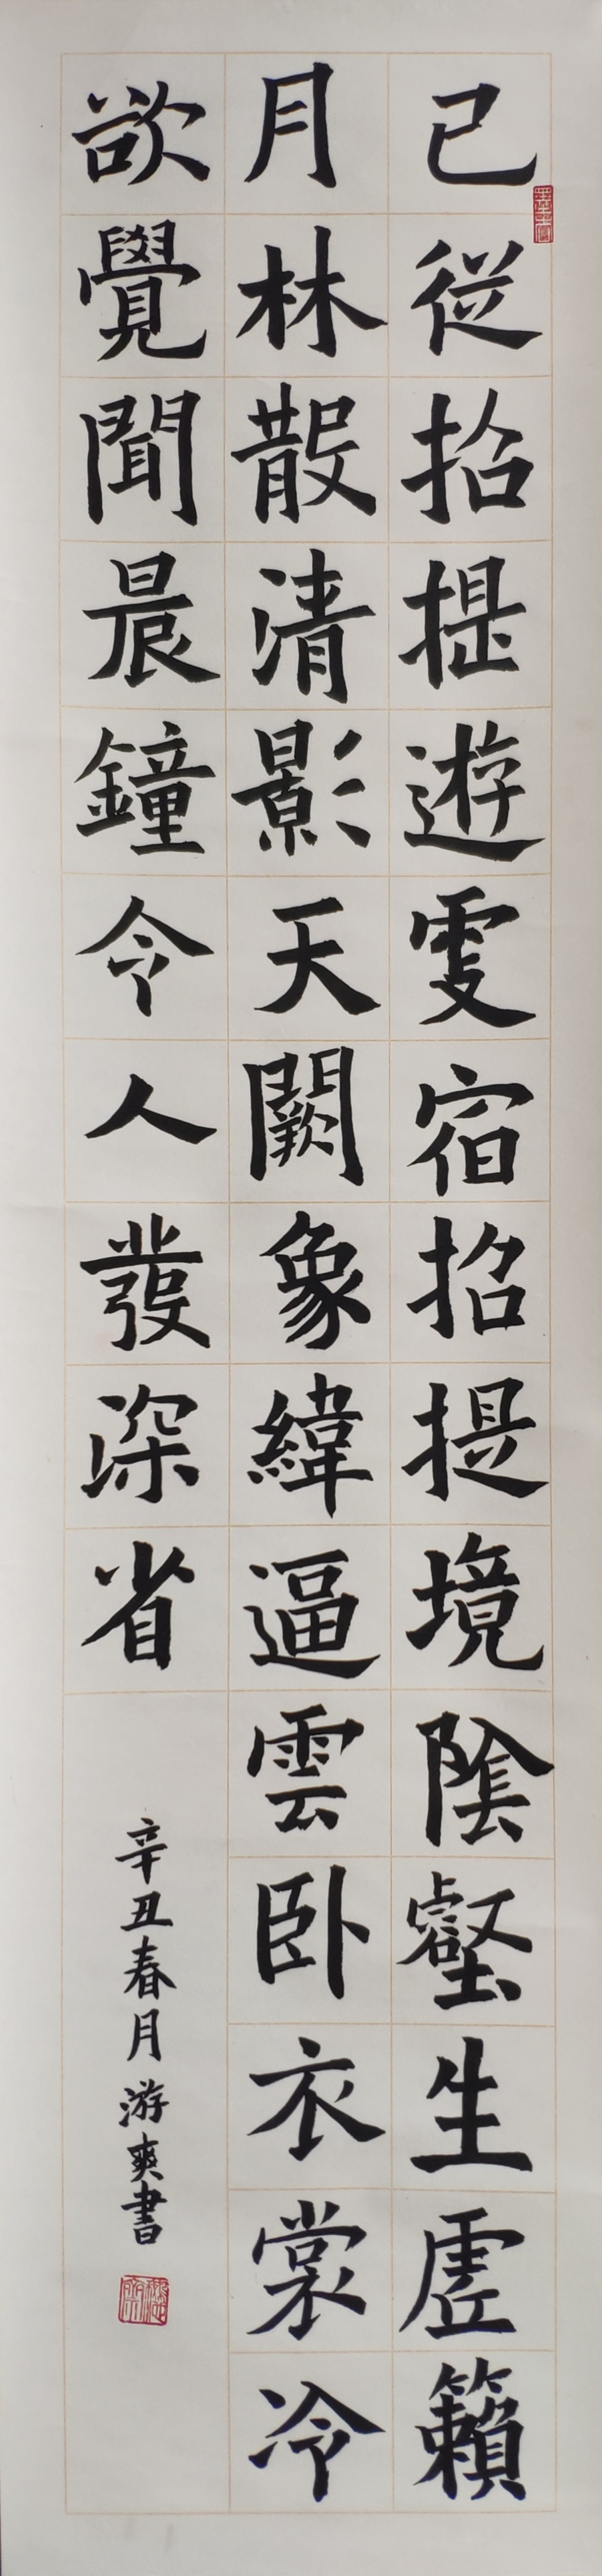 已從招提遊更宿招提境陰壑生虛籟
月林散清影天闕象緯逼雲卧衣裳冷
欲覺聞晨鐘令人發深省
辛丑春月游爽書